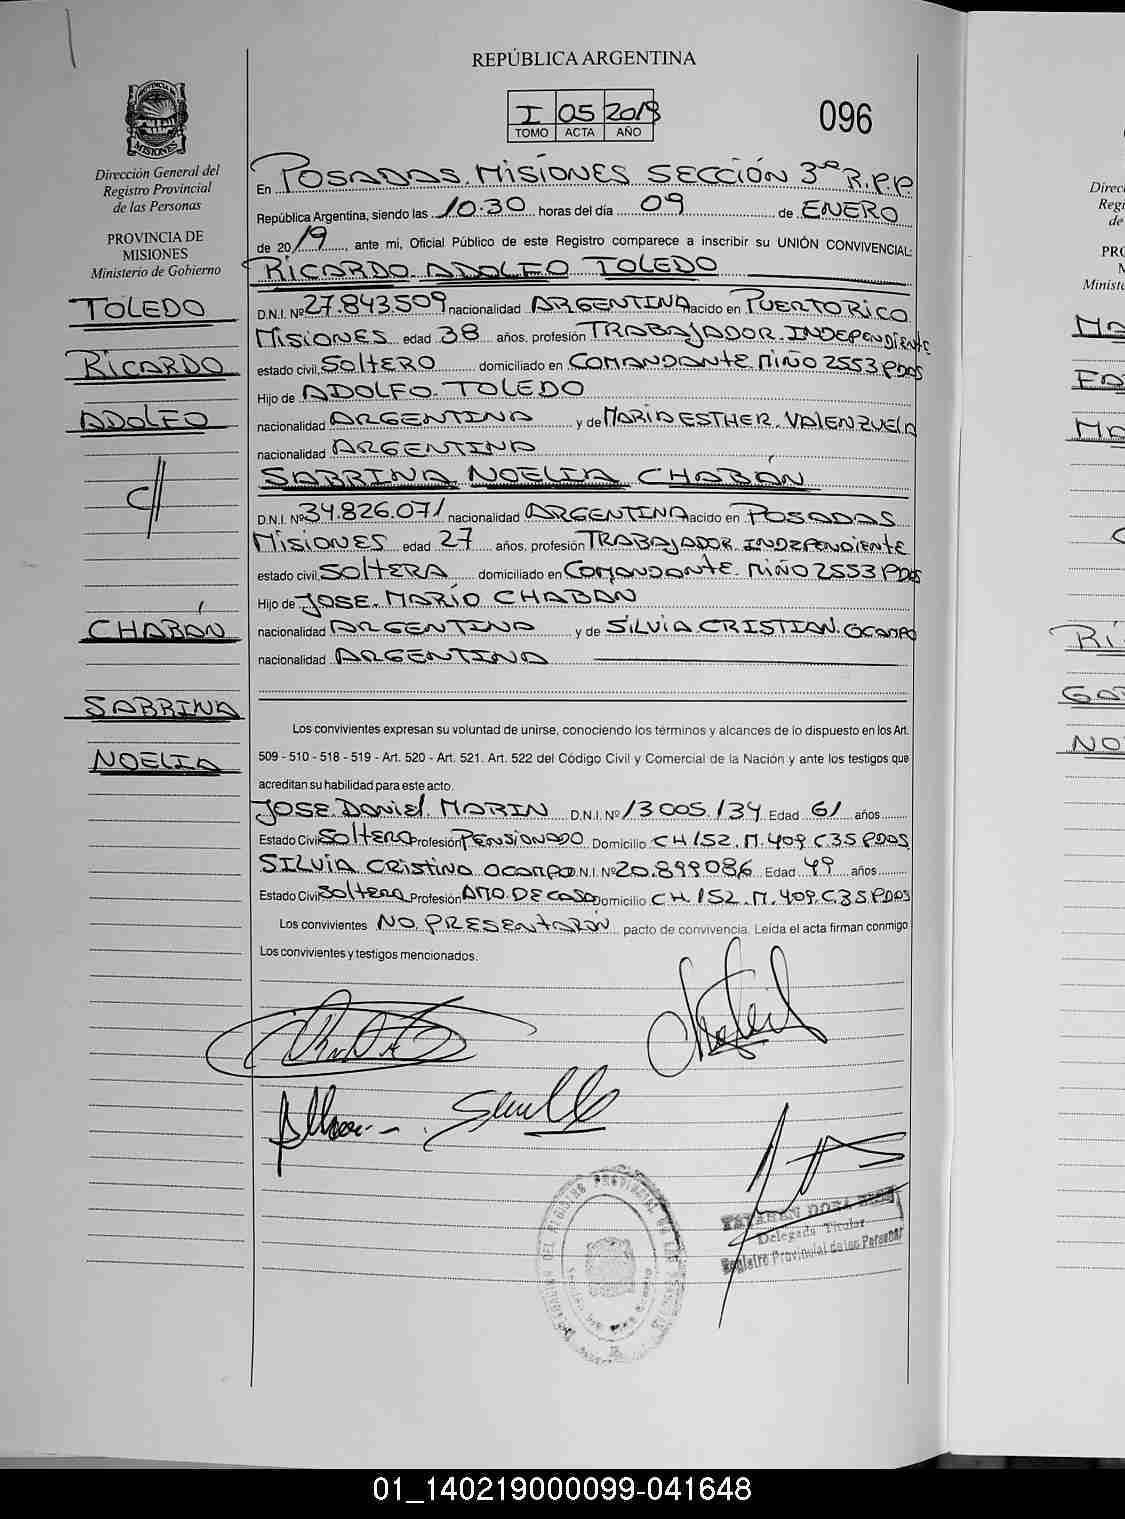 REPÚBLICA ARGENTINA
I 05 2019
TOMO ACTA AÑO
096
PROVINCIA DE MISIONES
Dirección General del
Registro Provincial
de las Personas
PROVINCIA DE
MISIONES
Ministerio de Gobierno
TOLEDO
RICARDO
ADOLFO
C//
CHABÁN
SABRINA
NOELIA
En POSADAS. MISIONES SECCIÓN 3ra R.P.P
República Argentina, siendo las 10.30 horas del día 09 de ENERO
de 2019, ante mi, Oficial Público de este Registro comparece a inscribir su UNIÓN CONVIVENCIAL:
RICARDO ADOLFO TOLEDO
D.N.I. Nº 27.843.509 nacionalidad ARGENTINA nacido en PUERTO RICO
MISIONES edad 38 años, profesión TRABAJADOR INDEPENDIENTE
estado civil, SOLTERO domiciliado en COMANDANTE MIÑO 2553 PDAS
Hijo de ADOLFO TOLEDO
nacionalidad ARGENTINA y de MARIA ESTHER VALENZUELA
nacionalidad ARGENTINA
SABRINA NOELIA CHABÁN
D.N.I. Nº 34.826.071 nacionalidad ARGENTINA nacido en POSADAS
MISIONES edad 27 años, profesión TRABAJADOR INDEPENDIENTE
estado civil, SOLTERA domiciliado en COMANDANTE MIÑO 2553 PDAS
Hijo de JOSE MARIO CHABAN
nacionalidad ARGENTINA y de SILVIA CRISTIAN OCAMPO
nacionalidad ARGENTINA
Los convivientes expresan su voluntad de unirse, conociendo los términos y alcances de lo dispuesto en los Art.
509 - 510 - 518 - 519 - Art. 520 - Art. 521. Art. 522 del Código Civil y Comercial de la Nación y ante los testigos que
acreditan su habilidad para este acto.
JOSE DANIEL MARIN D.N.I. Nº 13005.134 Edad 61 años
Estado Civil SOLTERO Profesión PENSIONADO Domicilio CH 152. M. 409 C.35 PDAS
SILVIA CRISTINA OCAMPO D.N.I. Nº 20.899086 Edad 49 años
Estado Civil SOLTERA Profesión AMA DE CASA Domicilio CH 152. M. 409. C.35. PDAS
Los convivientes NO PRESENTARÓN pacto de convivencia. Leída el acta firman conmigo
Los convivientes y testigos mencionados.
Delegada Titular
Registro Provincial de las Personas
01_140219000099-041648